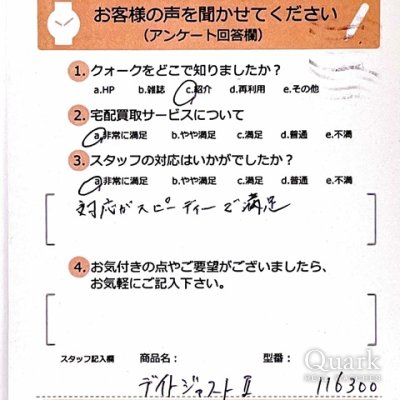 お客様の声を聞かせてください
(アンケート回答欄)
1. クォークをどこで知りましたか？
a.HP b.雑誌 c.紹介 d.再利用 e.その他
2. 宅配買取サービスについて
a.非常に満足 b.やや満足 c.満足 d.普通 e.不満
3. スタッフの対応はいかがでしたか？
a.非常に満足 b.やや満足 c.満足 d.普通 e.不満
対応がスピーディーで満足
4. お気付きの点やご要望がございましたら、
お気軽にご記入下さい。
スタッフ記入欄 商品名： 型番：
デイトジャストⅡ 116300
Quark